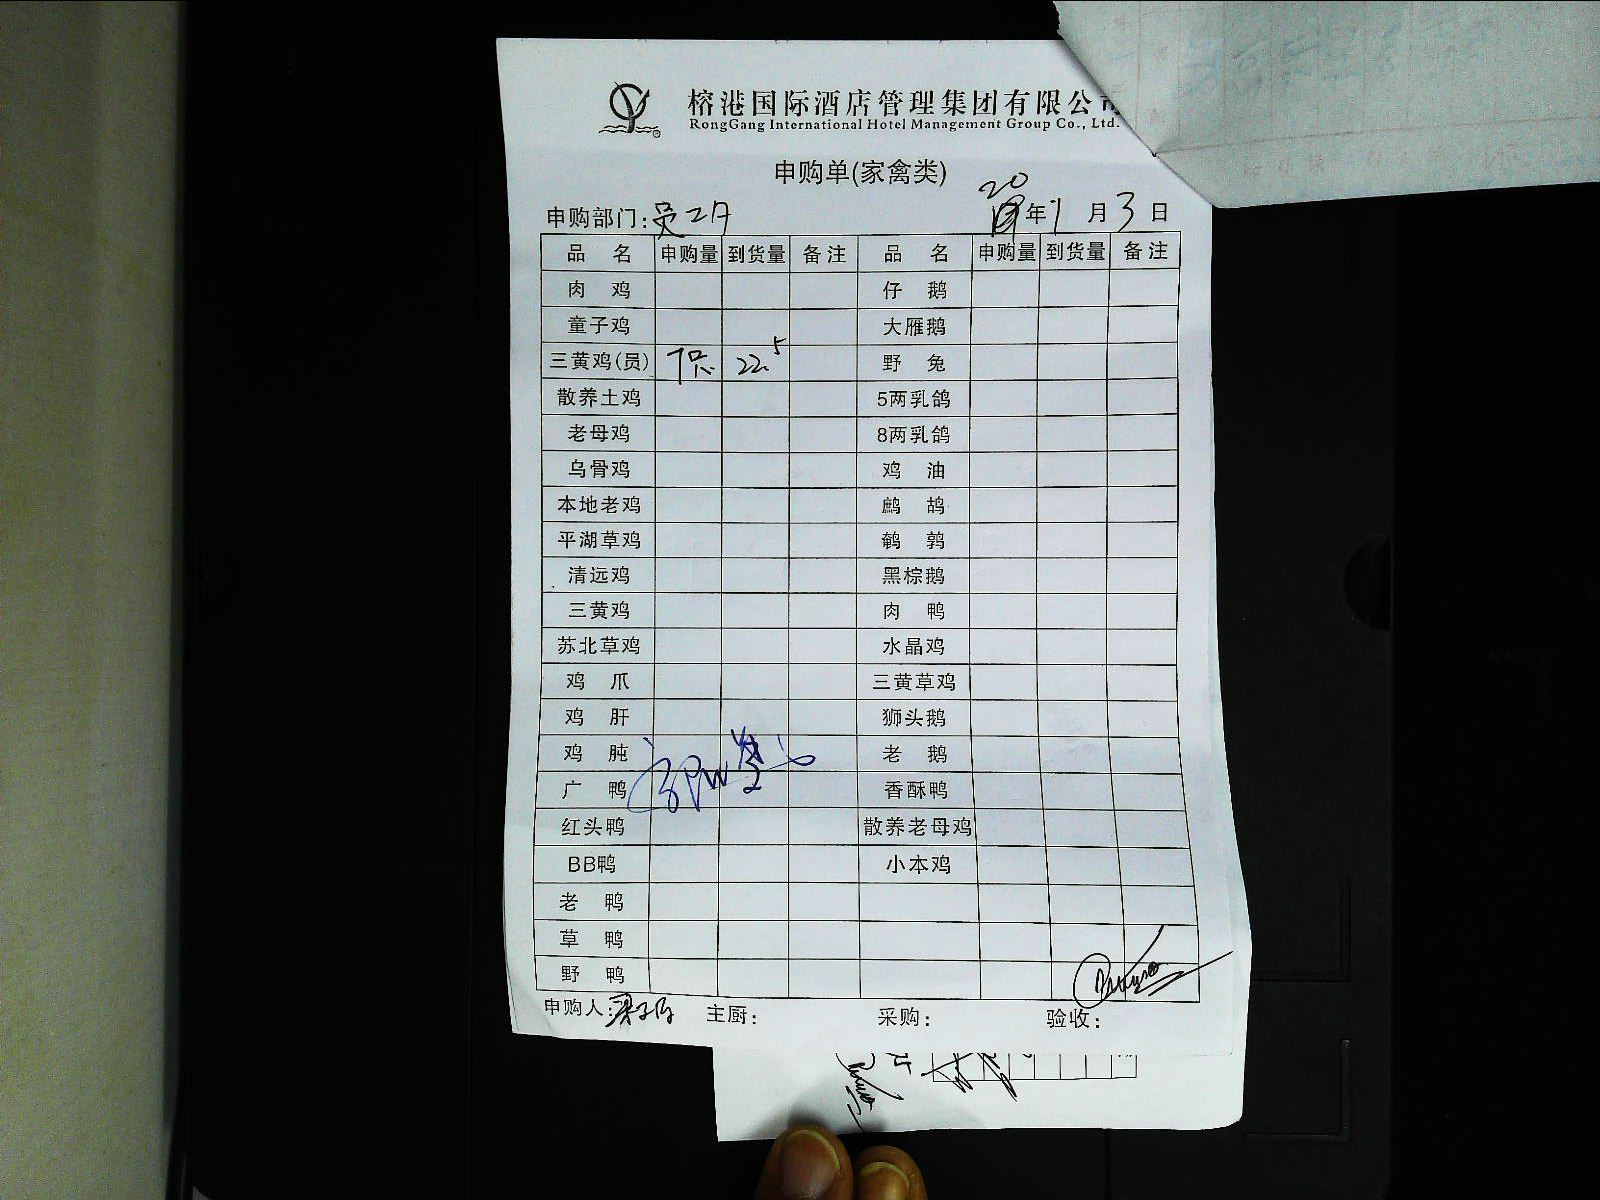 榕港国际酒店管理集团有限公司
RongGang International Hotel Management Group Co., Ltd.
申购单(家禽类)
申购部门: 20年1月3日
品名 申购量 到货量 备注 品名 申购量 到货量 备注
肉鸡 仔鹅
童子鸡 大雁鹅
三黄鸡(员) 7只 22.5 野兔
散养土鸡 5两乳鸽
老母鸡 8两乳鸽
乌骨鸡 鸡油
本地老鸡 鹧鸪
平湖草鸡 鹌鹑
清远鸡 黑棕鹅
三黄鸡 肉鸭
苏北草鸡 水晶鸡
鸡爪 三黄草鸡
鸡肝 狮头鹅
鸡肫 老鹅
广鸭 香酥鸭
红头鸭 散养老母鸡
BB鸭 小本鸡
老鸭
草鸭
野鸭
申购人: 主厨: 采购: 验收: